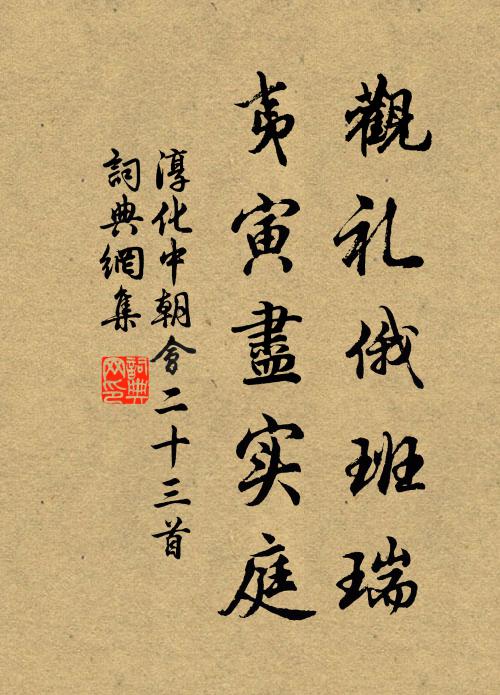 觀礼俄班瑞
夷寅盡实庭
淳化中朝會二十三首
詞典網集
詞典網印